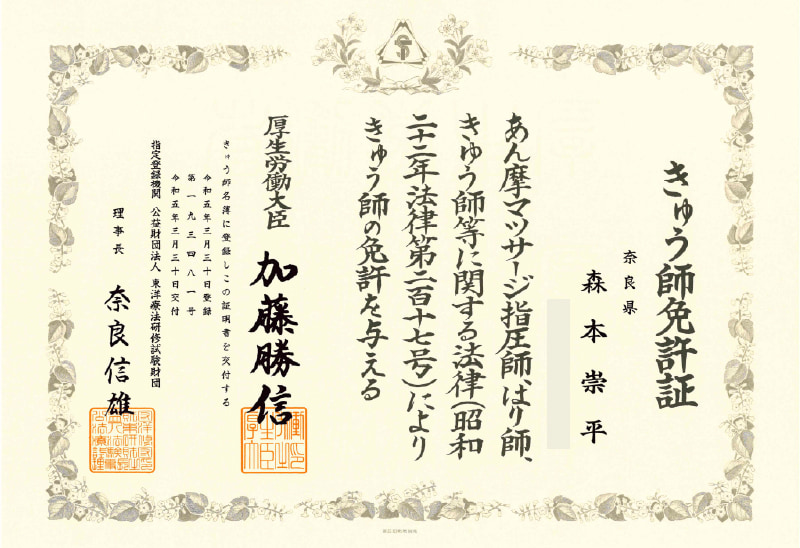 きゅう師免許証
奈良県
森本崇平
あん摩マツサージ指圧師、はり師、
きゅう師等に関する法律（昭和
二十二年法律第二百十七号）により
きゅう師の免許を与える
厚生労働大臣
加藤勝信
きゅう師名簿に登録しこの証明書を交付する
令和五年三月三十日登録
第一九三四八一号
令和五年三月三十日交付
指定登録機関 公益財団法人 東洋療法研修試験財団
理事長 奈良信雄